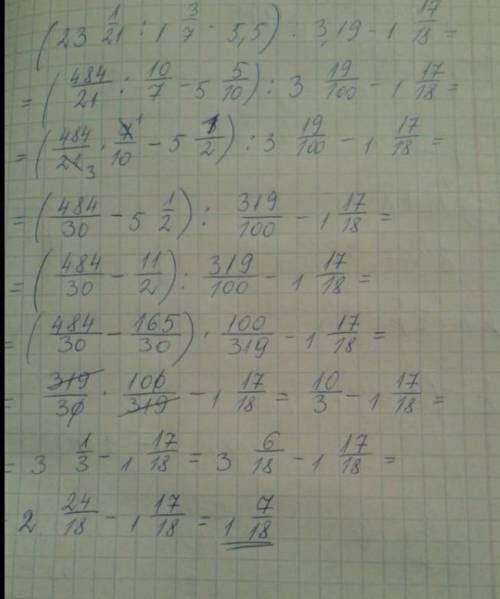 (23 1/21 : 1 3/7 - 5,5) : 3,19 - 1 17/18 =
= (484/21 : 10/7 - 5 5/10) : 3 19/100 - 1 17/18 =
= (484/21 3 · 7 1/10 - 5 1/2) : 3 19/100 - 1 17/18 =
= (484/30 - 5 1/2) : 319/100 - 1 17/18 =
= (484/30 - 11/2) : 319/100 - 1 17/18 =
= (484/30 - 165/30) · 100/319 - 1 17/18 =
= 319/30 · 100/319 - 1 17/18 = 10/3 - 1 17/18 =
= 3 1/3 - 1 17/18 = 3 6/18 - 1 17/18 =
2 24/18 - 1 17/18 = 1 7/18